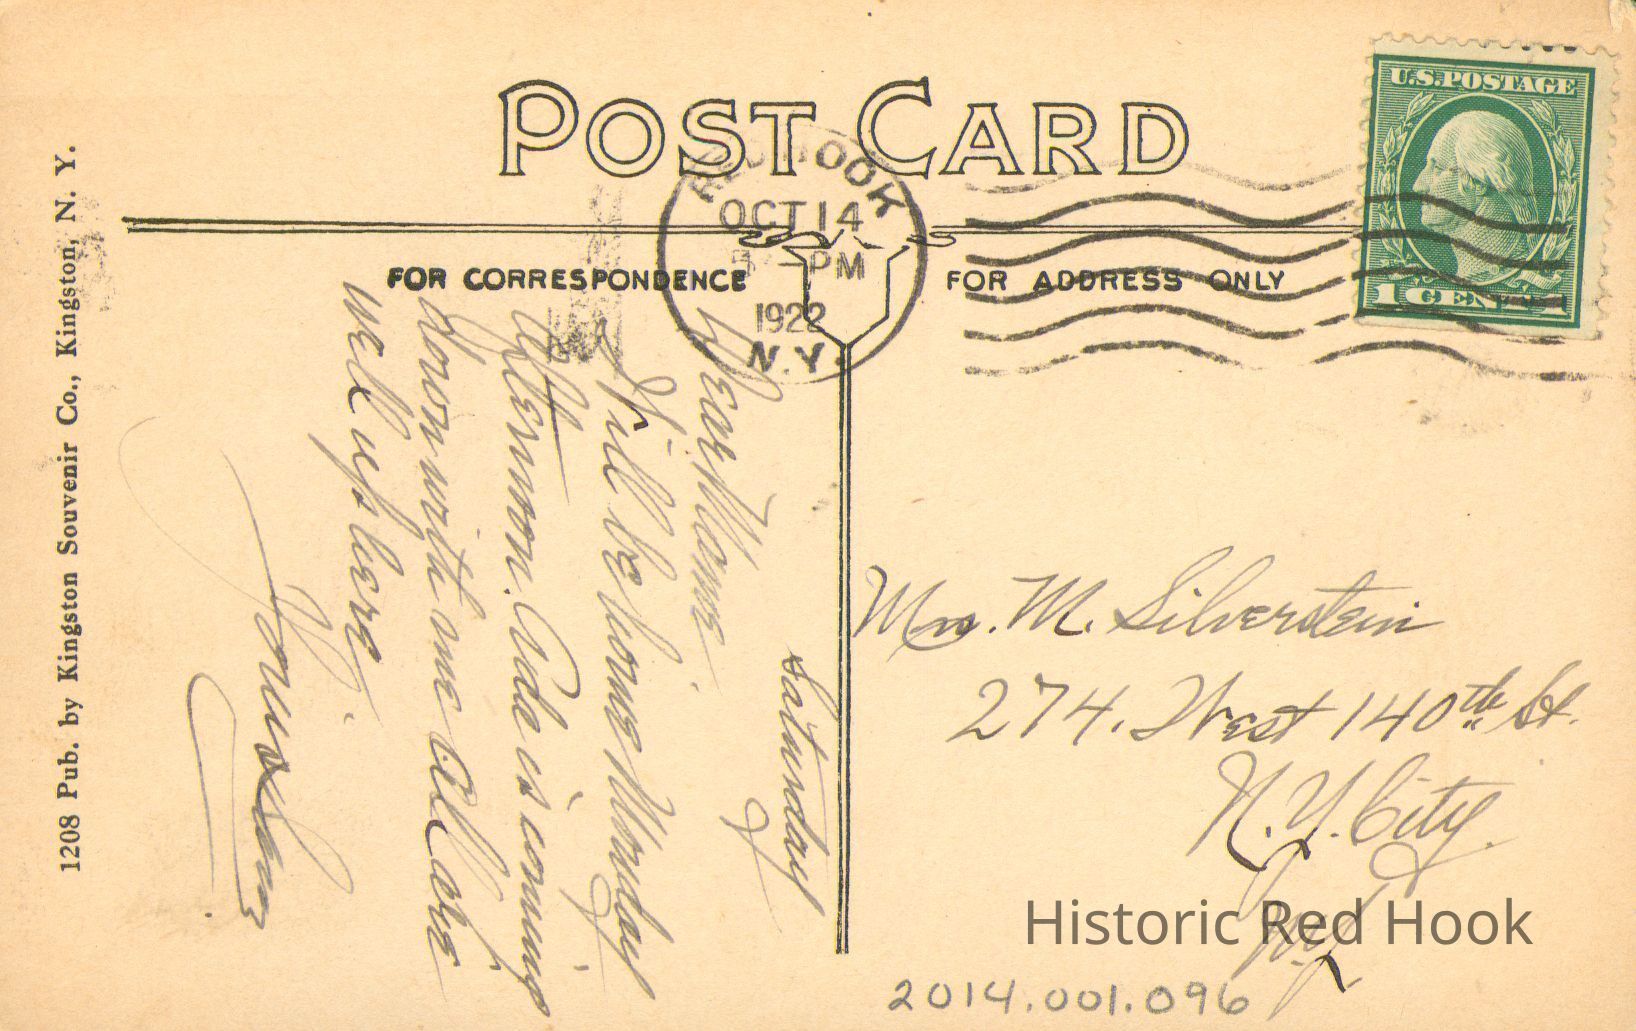 POST CARD
RED HOOK
OCT 14
PM
1922
N.Y.
U.S. POSTAGE
1 CENT 1
FOR CORRESPONDENCE
FOR ADDRESS ONLY
1208 Pub. by Kingston Souvenir Co., Kingston, N. Y.
Saturday
Dear Mama.
Will be home Monday
afternoon. Ada is coming
down with me. All are
well up here.
Mrs. M. Silverstein
274. West 140th St.
N.Y. City.
N.Y.
Historic Red Hook
2014.001.096